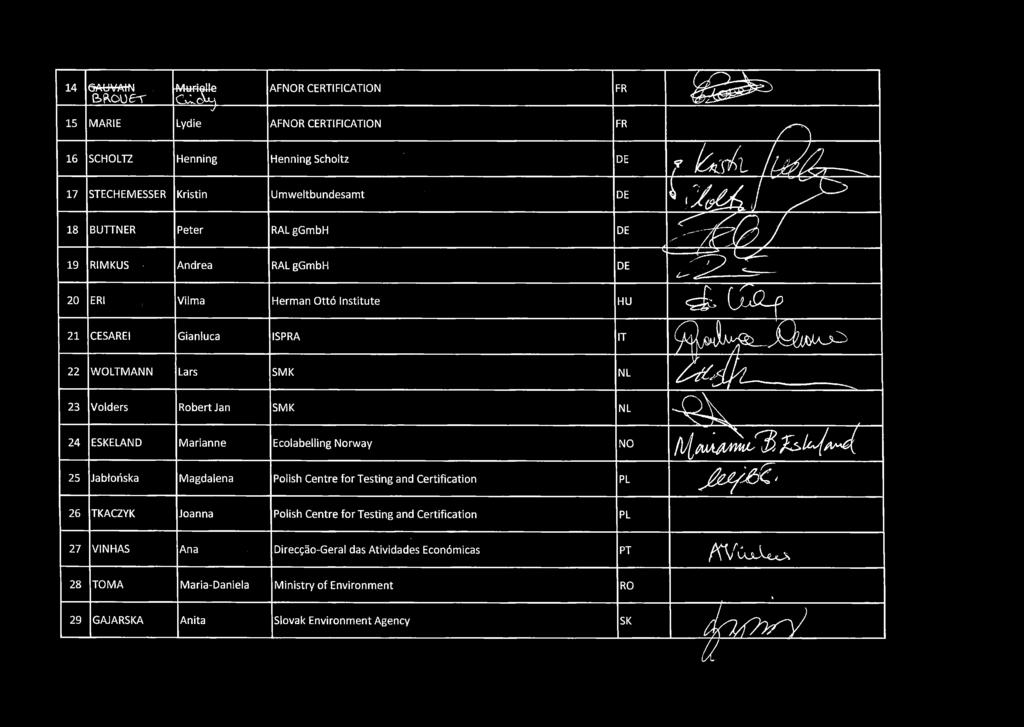 14 GAUVAIN Murielle AFNOR CERTIFICATION FR
BROUET Cindy
15 MARIE Lydie AFNOR CERTIFICATION FR
16 SCHOLTZ Henning Henning Scholtz DE Kristin
17 STECHEMESSER Kristin Umweltbundesamt DE
18 BUTTNER Peter RAL gGmbH DE
19 RIMKUS Andrea RAL gGmbH DE
20 ERI Vilma Herman Ottó Institute HU
21 CESAREI Gianluca ISPRA IT
22 WOLTMANN Lars SMK NL
23 Volders Robert Jan SMK NL
24 ESKELAND Marianne Ecolabelling Norway NO Marianne B. Eskeland
25 Jabłońska Magdalena Polish Centre for Testing and Certification PL
26 TKACZYK Joanna Polish Centre for Testing and Certification PL
27 VINHAS Ana Direcção-Geral das Atividades Económicas PT
28 TOMA Maria-Daniela Ministry of Environment RO
29 GAJARSKA Anita Slovak Environment Agency SK